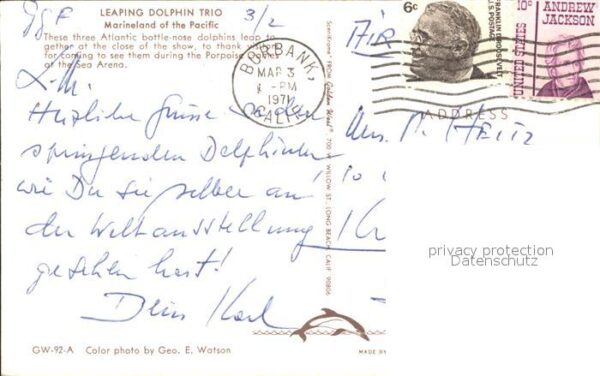 LEAPING DOLPHIN TRIO
Marineland of the Pacific
These three Atlantic bottle-nose dolphins leap to-
gether at the close of the show, to thank visitors
for coming to see them during the Porpoise
at the Sea Arena.
3/2
L. M.
Herzliche Grüsse
springenden Delphinen
wie Du sie selber an
der Weltausstellung
gesehen hast!
Dein Karl
GW-92-A Color photo by Geo. E. Watson
BURBANK,
MAR 3
PM
1971
CALIF.
FROM Golden West
700 W. WILLOW ST., LONG BEACH, CALIF. 90806
MADE BY
AIR
6c
FRANKLIN D. ROOSEVELT
U.S. POSTAGE
10c
ANDREW
JACKSON
UNITED STATES
ADDRESS
Heitz
privacy protection
Datenschutz